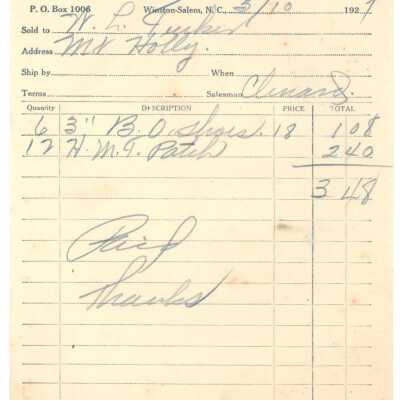 P. O. Box 1006 Winston-Salem, N. C., 5/10 1927
Sold to W. L. Tucker
Address Mt Holly.
Ship by When
Terms Salesman Clinard.
Quantity DESCRIPTION PRICE TOTAL
6 3" B. O. Shoes. 18 108
12 H. M. T. Patch 240
348
Paid
Thanks